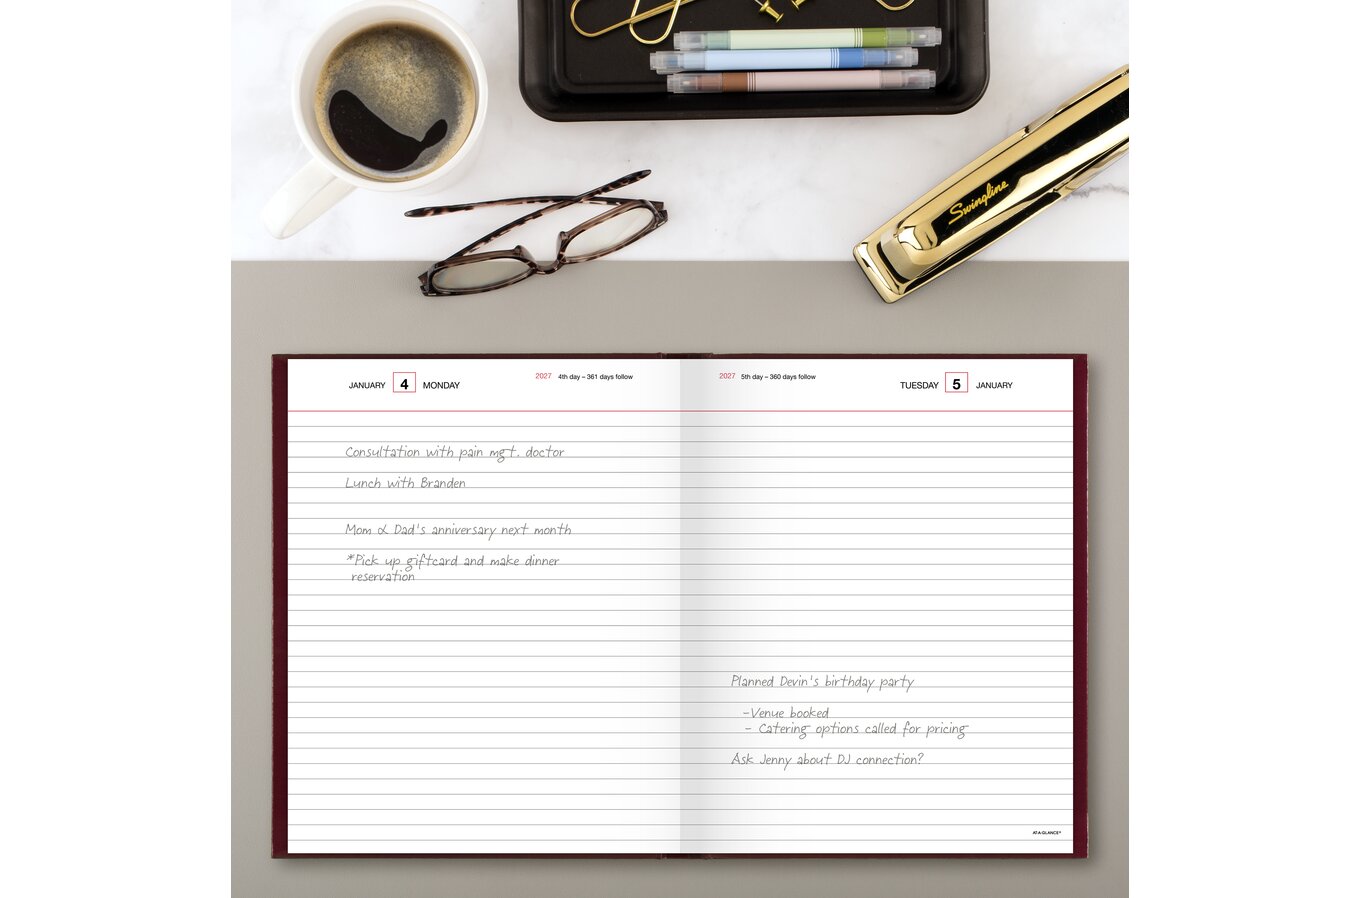 Swingline
JANUARY 4 MONDAY
2027 4th day – 361 days follow
Consultation with pain mgt. doctor
Lunch with Branden
Mom & Dad's anniversary next month
*Pick up giftcard and make dinner
reservation
2027 5th day – 360 days follow
TUESDAY 5 JANUARY
Planned Devin's birthday party
-Venue booked
- Catering options called for pricing
Ask Jenny about DJ connection?
AT-A-GLANCE®